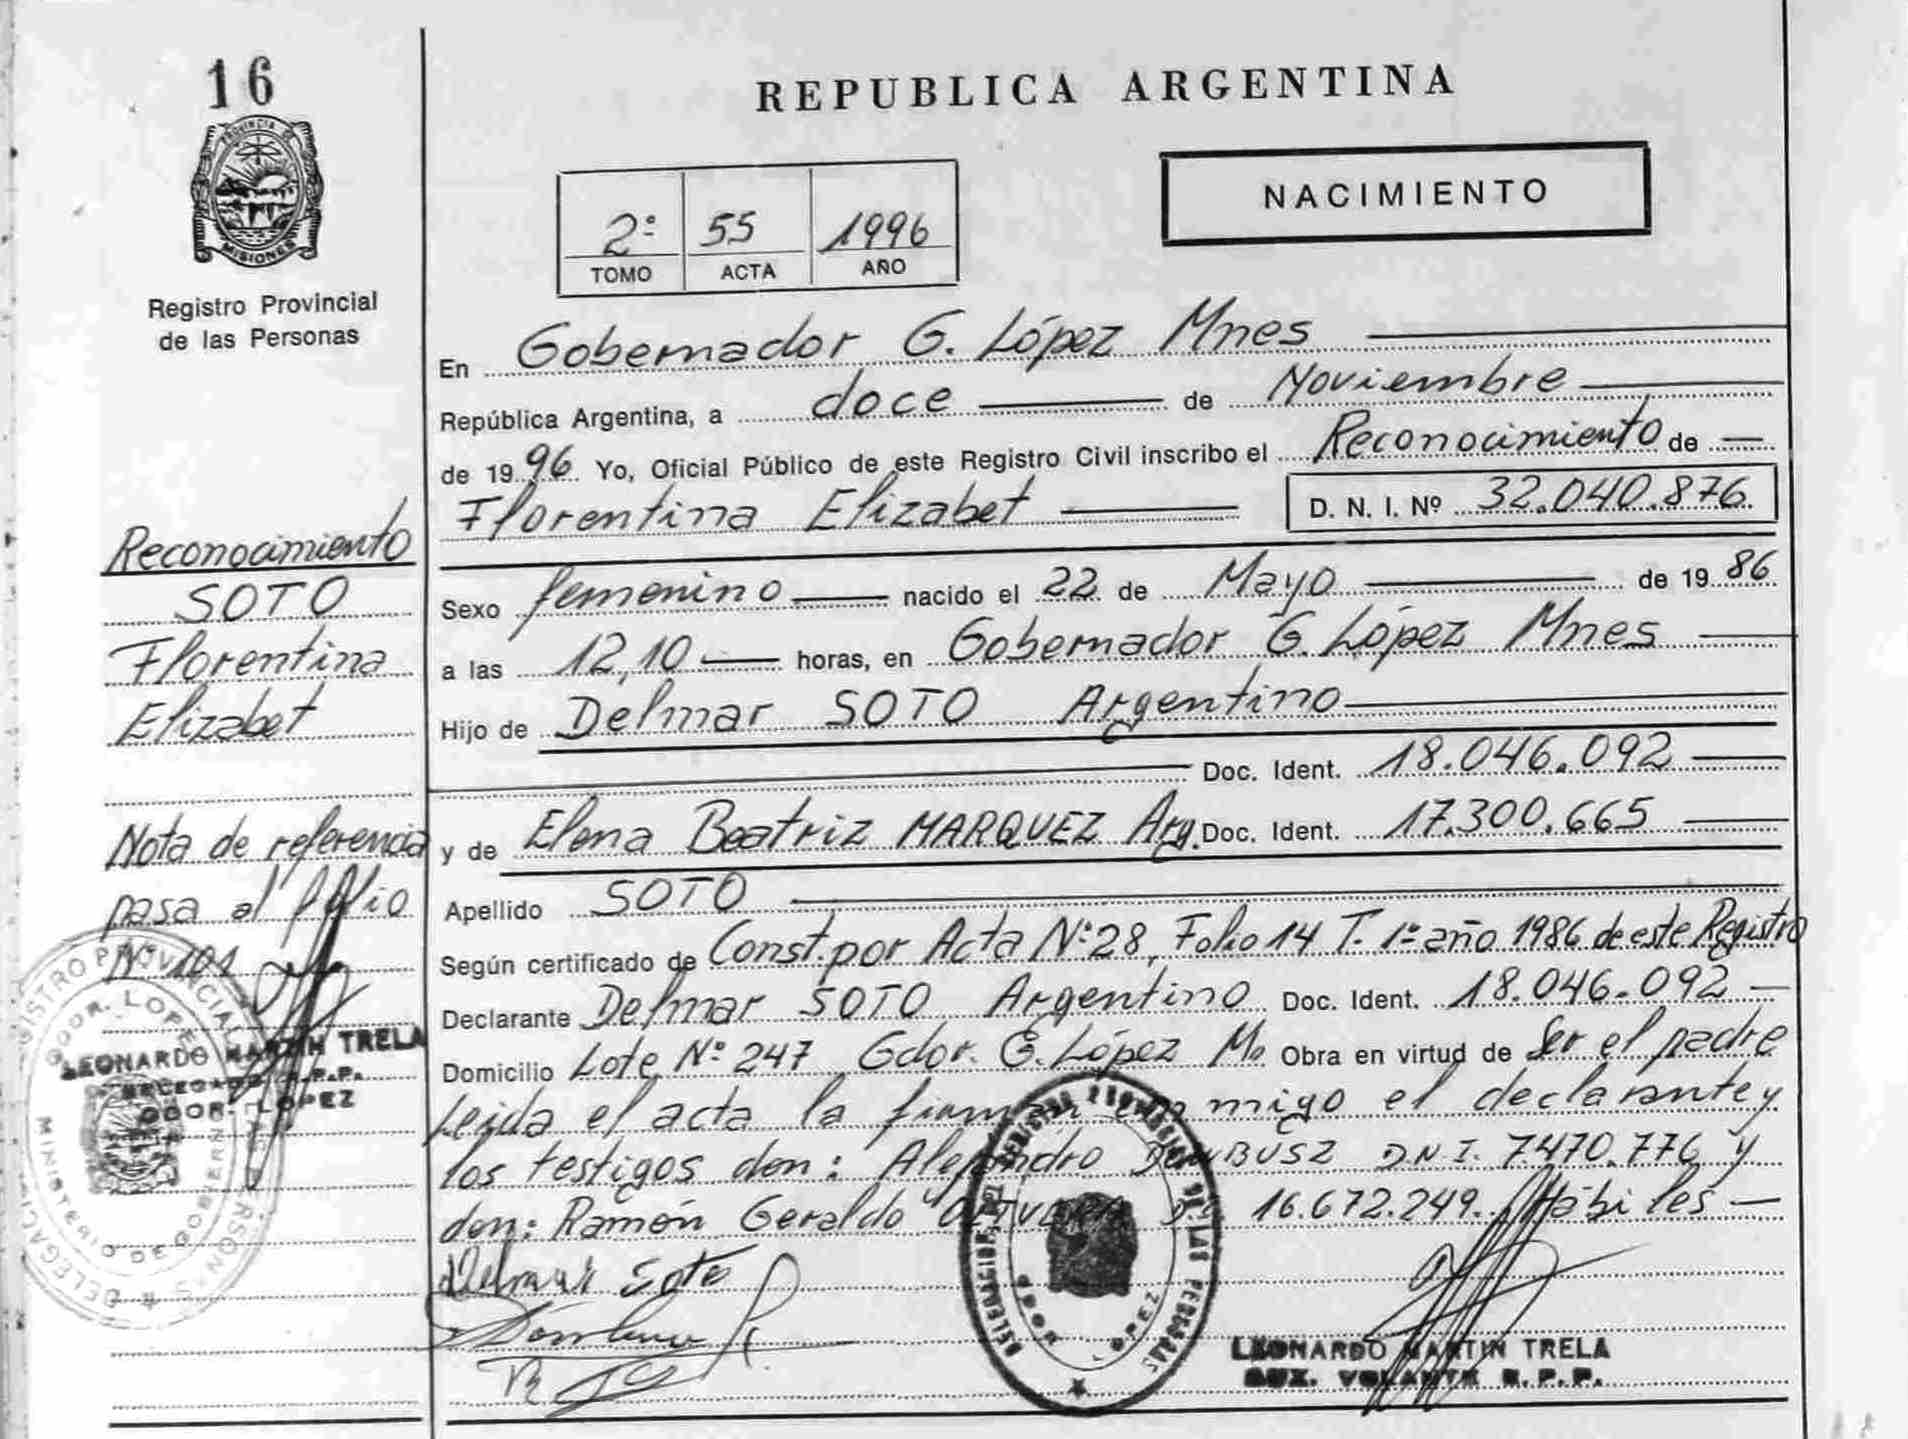 16
PROVINCIA DE
MISIONES
Registro Provincial
de las Personas
Reconocimiento
SOTO
Florentina
Elizabet
Nota de referencia
pasa al folio
Nº 101
LEONARDO MARTIN TRELA
DELEGADO R.P.P.
GDOR. LOPEZ
REPUBLICA ARGENTINA
NACIMIENTO
2º 55 1996
TOMO ACTA AÑO
En Gobernador G. López Mnes
República Argentina, a doce de Noviembre
de 1996 Yo, Oficial Público de este Registro Civil inscribo el Reconocimiento de
Florentina Elizabet D. N. I. Nº 32.040.876.
Sexo femenino nacido el 22 de Mayo de 1986
a las 12,10 horas, en Gobernador G. López Mnes
Hijo de Delmar SOTO Argentino
Doc. Ident. 18.046.092
y de Elena Beatriz MARQUEZ Arg. Doc. Ident. 17.300.665
Apellido SOTO
Según certificado de Const. por Acta Nº 28, Folio 14 T. 1º año 1986 de este Registro
Declarante Delmar SOTO Argentino Doc. Ident. 18.046.092
Domicilio Lote Nº 247 Gdor. G. López M. Obra en virtud de Ser el padre
Leida el acta la firman conmigo el declarante y
los testigos don: Alejandro DNI. 7470.776 y
don: Ramón Geraldo 16.672.249. Hábiles
Delmar Soto
DELEGACION REGISTRO PROVINCIAL DE LAS PERSONAS
GDOR. LOPEZ
LEONARDO MARTIN TRELA
AUX. VOLANTE R.P.P.